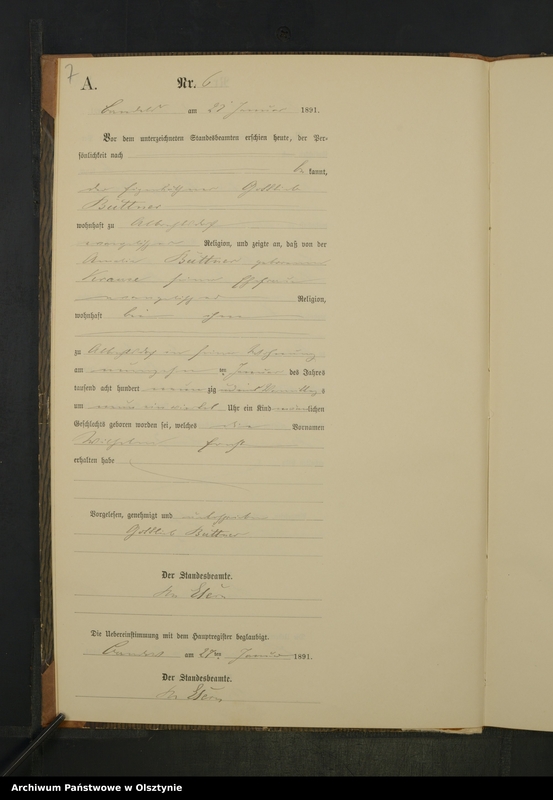 7
A. Nr. 6
am 27 Januar 1891.
Vor dem unterzeichneten Standesbeamten erschien heute, der Per-
sönlichkeit nach
be kannt,
der Eigenkäthner Gottlieb
Büttner
wohnhaft zu
evangelischer Religion, und zeigte an, daß von der
Büttner geborenen
Krause seiner Ehefrau
evangelischer Religion,
wohnhaft bei ihm
zu in seiner Wohnung
am ten Januar des Jahres
tausend acht hundert neun zig und ein Vormittags
um neun ein viertel Uhr ein Kind männlichen
Geschlechts geboren worden sei, welches die Vornamen
Wilhelm Ernst
erhalten habe
Vorgelesen, genehmigt und unterschrieben
Gottlieb Büttner
Der Standesbeamte.
Die Uebereinstimmung mit dem Hauptregister beglaubigt.
am 27ten Januar 1891.
Der Standesbeamte.
Archiwum Państwowe w Olsztynie